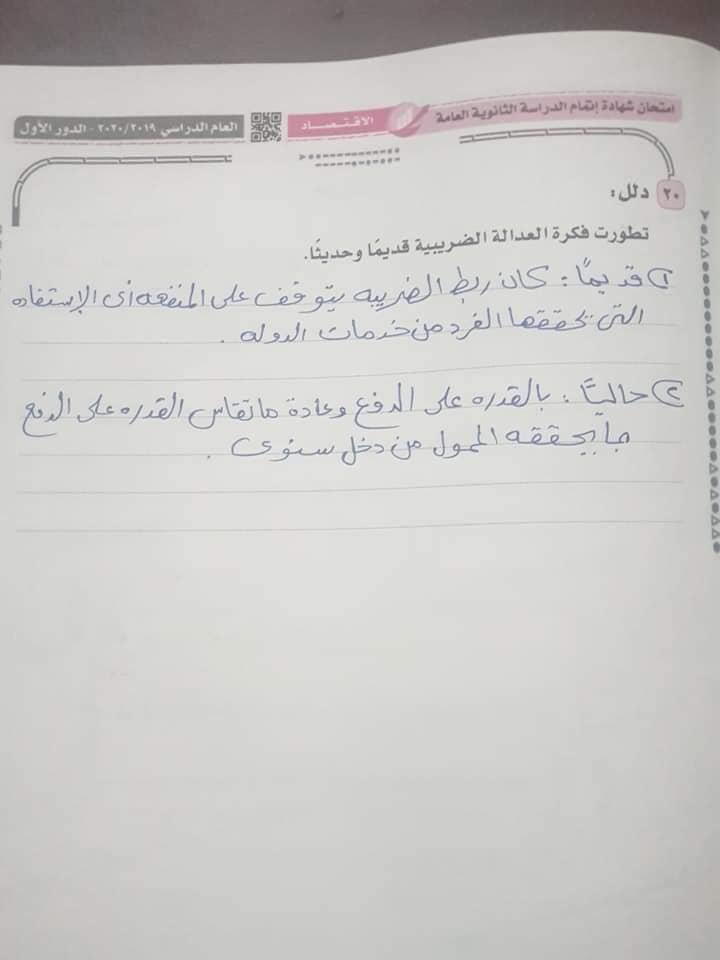 امتحان شهادة إتمام الدراسة الثانوية العامة
الاقتصاد
العام الدراسي ٢٠٢٠/٢٠١٩ - الدور الأول
٢٠ دلل:
تطورت فكرة العدالة الضريبية قديمًا وحديثًا.
١ قديمًا: كان ربط الضريبه يتوقف على المنفعه أى الإستفاده
التى يحققها الفرد من خدمات الدوله .
٢ حاليًا: بالقدره على الدفع وعادة ما تقاس القدره على الدفع
بما يحققه الممول من دخل سنوى .